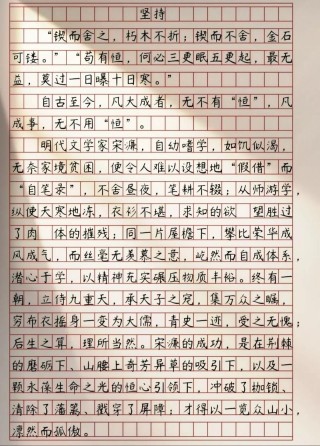 坚持
“锲而舍之，朽木不折；锲而不舍，金石
可镂。”“苟有恒，何必三更眠五更起，最无
益，莫过一日曝十日寒。”
自古至今，凡大成者，无不有“恒”，凡
成事，无不用“恒”。
明代文学家宋濂，自幼嗜学，如饥似渴，
无奈家境贫困，使令人难以设想地“假借”而
“自笔录”，不舍昼夜，笔耕不辍；从师游学，
纵使天寒地冻，衣衫不堪，求知的欲 望胜过
了肉 体的摧残；同一片屋檐下，攀比荣华成
风成气，而丝毫无羡慕之意，屹然而自成体系，
潜心于学，以精神充实碾压物质丰裕。终有一
朝，立侍九重天，承天子之宠，集万众之瞩，
穷布衣摇身一变为大儒，青史一述，受之无愧；
后生之算，理所当然。宋濂的成功，是在荆棘
的磨砺下、山腰上奇芳异草的吸引下，以及一
颗水葆生命之光的恒心引领下，冲破了枷锁、
清除了藩篱、戳穿了屏障；才得以一览众山小，
凛然而孤傲。